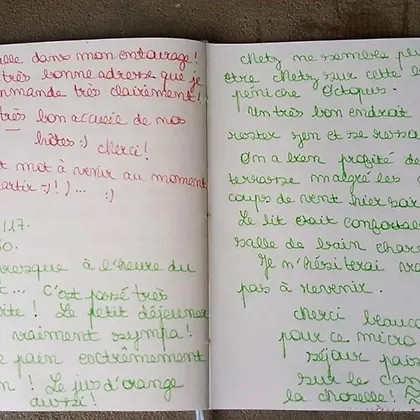 lle dans mon entourage !
très bonne adresse que je
mmande très clairement !
très bon accueil de nos
hôtes :) Merci !
t mot à venir au moment
artir :) ! ) ... :)
117.
50.
resque à l'heure du
t... C'est passé très
ite ! Le petit déjeuner
vraiment sympa !
e pain extrêmement
n ! Le jus d'orange
aussi !
chez ne sembles p
être chez sur cette
péniche Octopus.
Un très bon endroit
rester zen et se ress
On a bien profité de
terrasse malgré les
coups de vent hier soir
Le lit était confortab
salle de bain char
Je n'hésiterai
pas à revenir.
Merci beauc
pour ce micro
séjour pais
sur le dan
la Moselle !